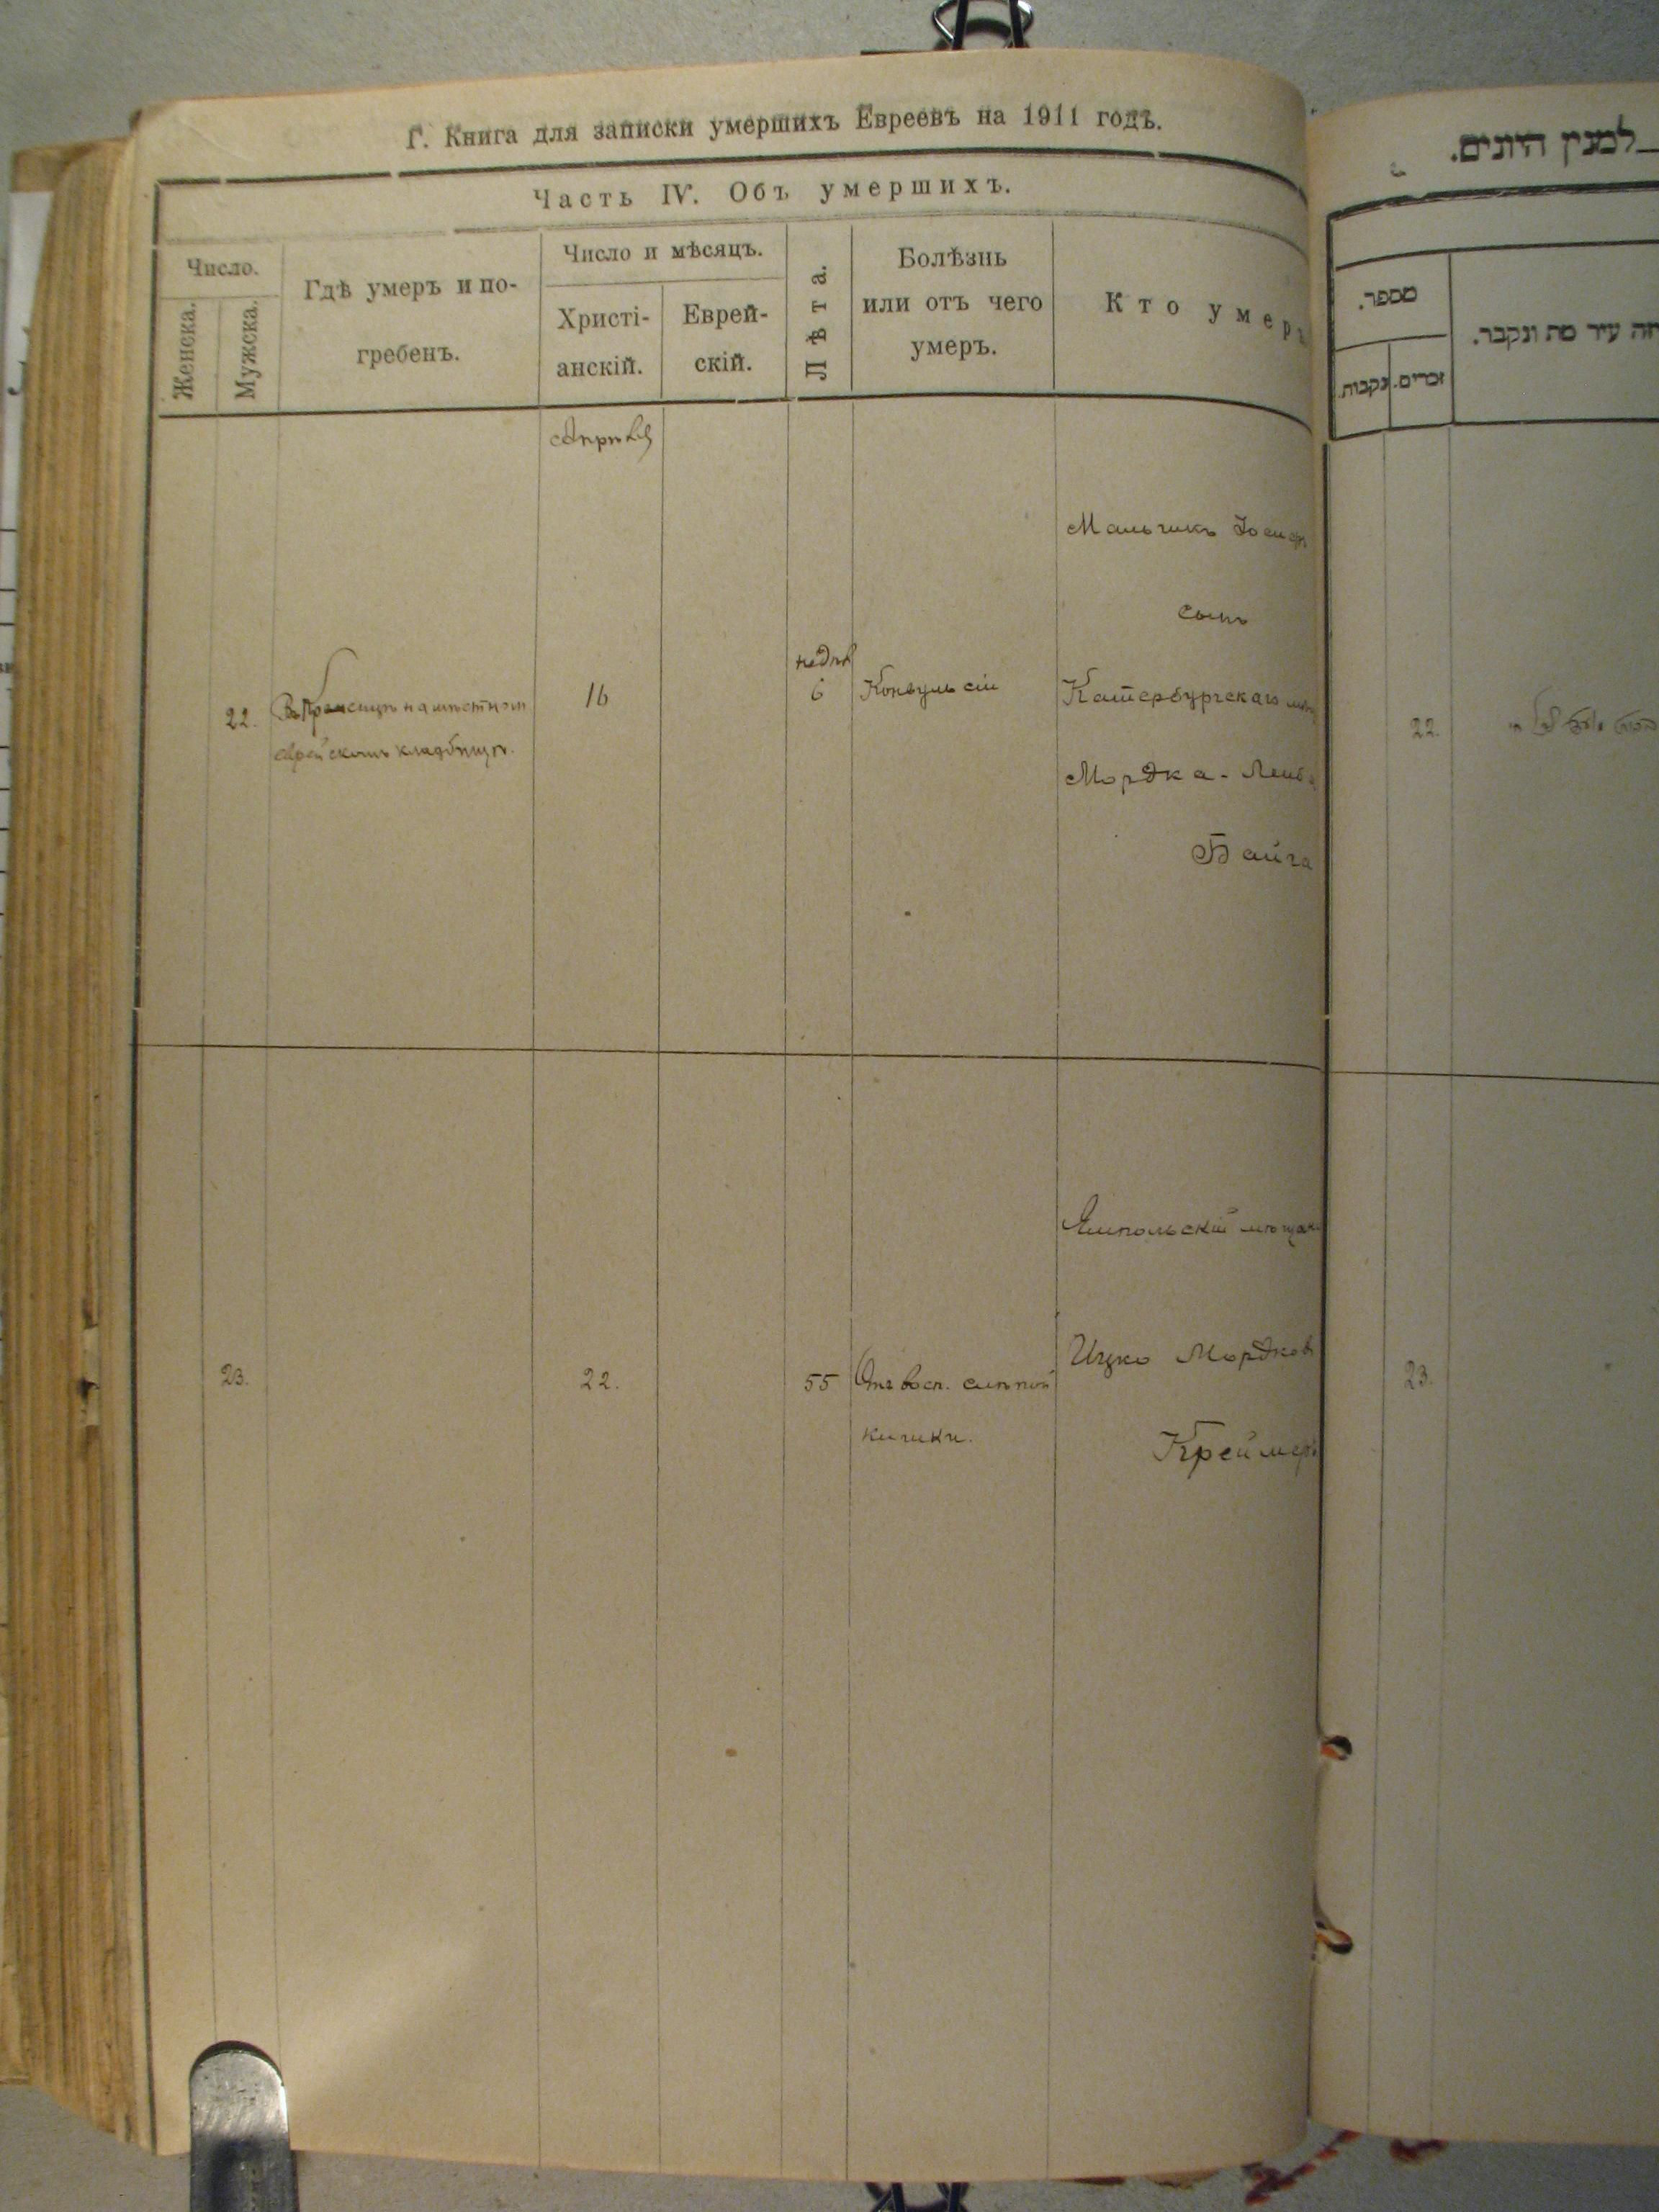 Г. Книга для записки умершихъ Евреевъ на 1911 годъ.
Часть IV. Объ умершихъ.
Число.
Женска.
Мужска.
Гдѣ умеръ и по-
гребенъ.
Число и мѣсяцъ.
Христі-
анскій.
Еврей-
скій.
Лѣта.
Болѣзнь
или отъ чего
умеръ.
Кто умеръ
Апрѣль
22.
на мѣстном
еврейскомъ кладбищѣ.
16
недѣл
6
Конвульсіи
Мальчикъ Іосиф
сынъ
Катербургскаго мѣщ
Мордка-Лейба
Байга
23.
22.
55
Отъ восп. слѣпой
кишки.
Ямпольскій мѣщан
Ицко Мордков
Креймер
למנין היונים.
מספר.
נקבות.
זכרים.
עיר מת ונקבר.
22.
23.